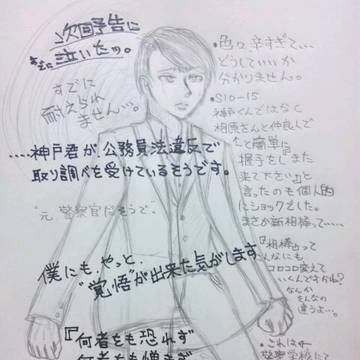 次回予告に
泣いたの。
すでに
耐えられ
ません…。
....神戸君が公務員法違反で
取り調べを受けているそうです。
元 警察官だそうで。
僕にも、やっと、
"覚悟"が出来た気がします
『何者をも恐れず
何者をも憎まず
•色々辛すぎて…
どうしていいか
分かりません。
•S10-15
神戸くんではなく
相原さんと仲良しで
簡単に
握手をしまた
来て下さい』と
言ったのも個人的
にショックでした。
まさか新相棒って…、
『相棒』って
こんなにも
コロコロ変えて
いくんですかね?
なんか
そんなの
違うよ…。
•これは
警察学校にて